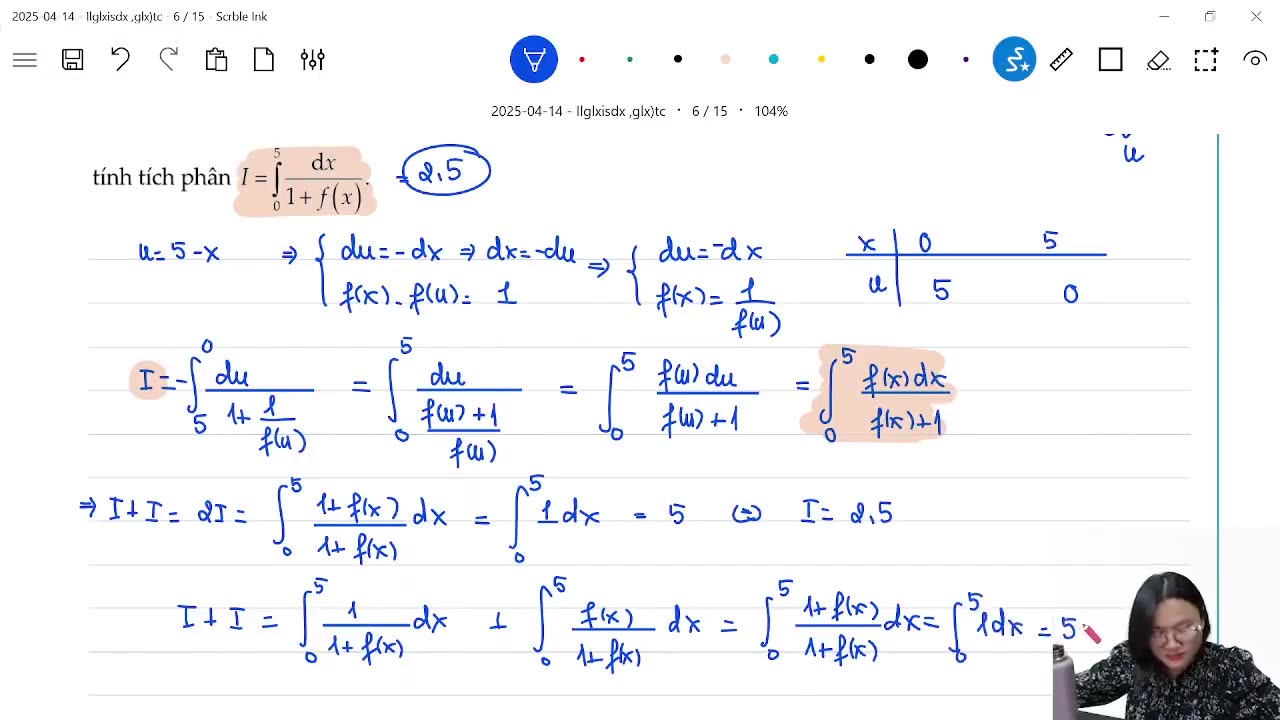 2025-04-14 - IIglxisdx ,glx)tc - 6 / 15 - Scrble Ink
2025-04-14 - IIglxisdx ,glx)tc • 6 / 15 • 104%
u
tính tích phân I = ∫₀⁵ dx/(1 + f(x)). = 2,5
u = 5 - x ⇒ { du = - dx ⇒ dx = -du ⇒ { du = -dx x | 0 5
f(x) . f(u) = 1 f(x) = 1/f(u) u | 5 0
I = - ∫₅⁰ du/(1 + 1/f(u)) = ∫₀⁵ du/((f(u) + 1)/f(u)) = ∫₀⁵ f(u) du/(f(u) + 1) = ∫₀⁵ f(x) dx/(f(x) + 1)
⇒ I + I = 2I = ∫₀⁵ (1 + f(x))/(1 + f(x)) dx = ∫₀⁵ 1 dx = 5 ⇔ I = 2,5
I + I = ∫₀⁵ 1/(1 + f(x)) dx + ∫₀⁵ f(x)/(1 + f(x)) dx = ∫₀⁵ (1 + f(x))/(1 + f(x)) dx = ∫₀⁵ 1 dx = 5